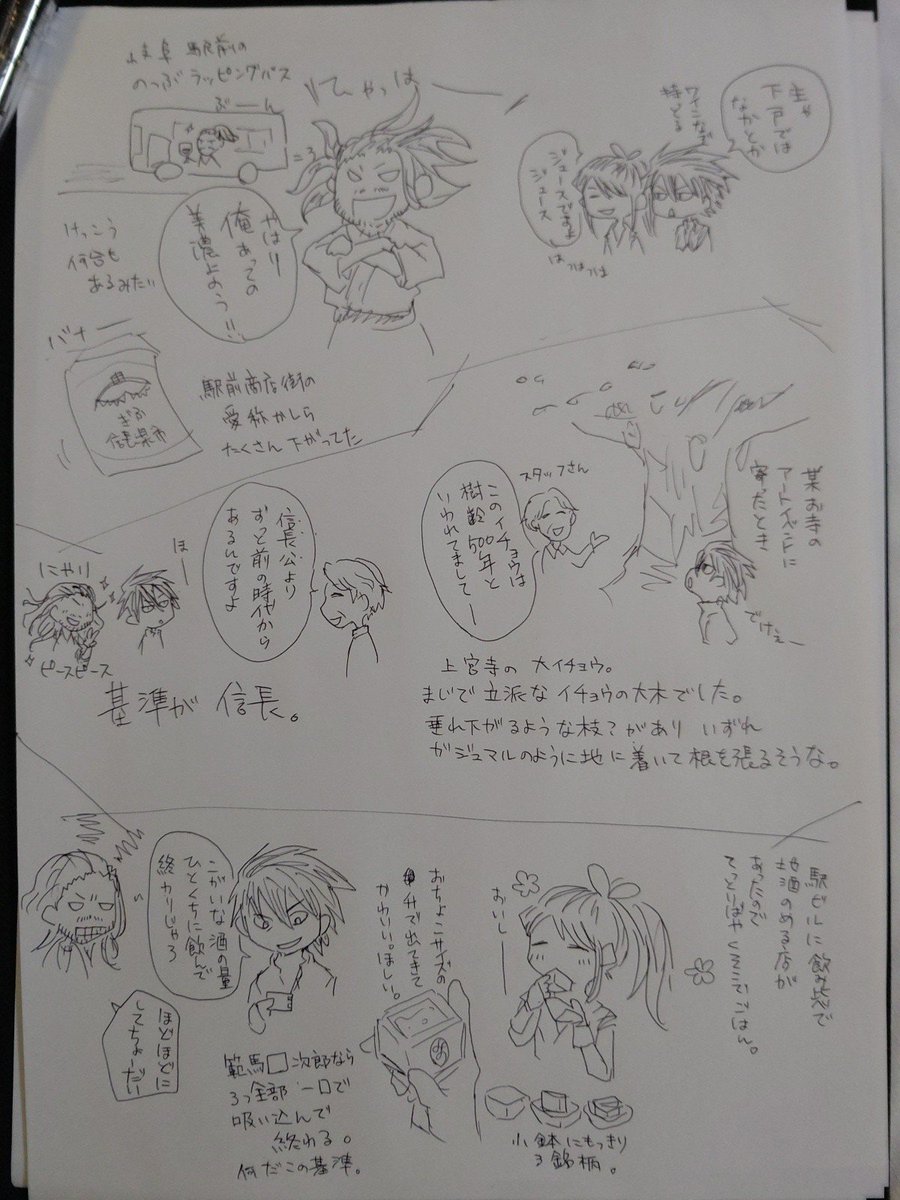 岐阜 駅前の
のっぶラッピングバス
ぶーん
ひゃっはー
やはり
俺あっての
美濃よのう!!
けっこう
何台も
あるみたい
バナー
ぎふ
信長楽市
駅前商店街の
愛称かしら
たくさん下がってた
主や
下戸では
なかとか
ジュースでまよ
ジュース
はっはっは
某お寺の
アートイベントに
寄ったとき
でけぇー
スタッフさん
このイチョウは
樹齢500年と
いわれてましてー
信長公より
ずっと前の時代から
あるんですよ
ほー
にやり
ピースピース
基準が 信長。
上宮寺の 大イチョウ。
まじで立派なイチョウの大木でした。
垂れ下がるような枝?があり いずれ
ガジュマルのように地に着いて根を張るそうな。
駅ビルに飲み比べで
地酒のめる店が
あったので
てっとりばやくそこでごはん。
おいしー
小鉢にもっきり
3銘柄。
おちょこサイズの
升で出てきて
かわいい。ほしい。
こがいな酒の量
ひとくちに飲んで
終わりじゃろ
範馬□次郎なら
3つ全部一口で
吸い込んで
終わる。
何だこの基準。
ほどほどに
してちょーだい